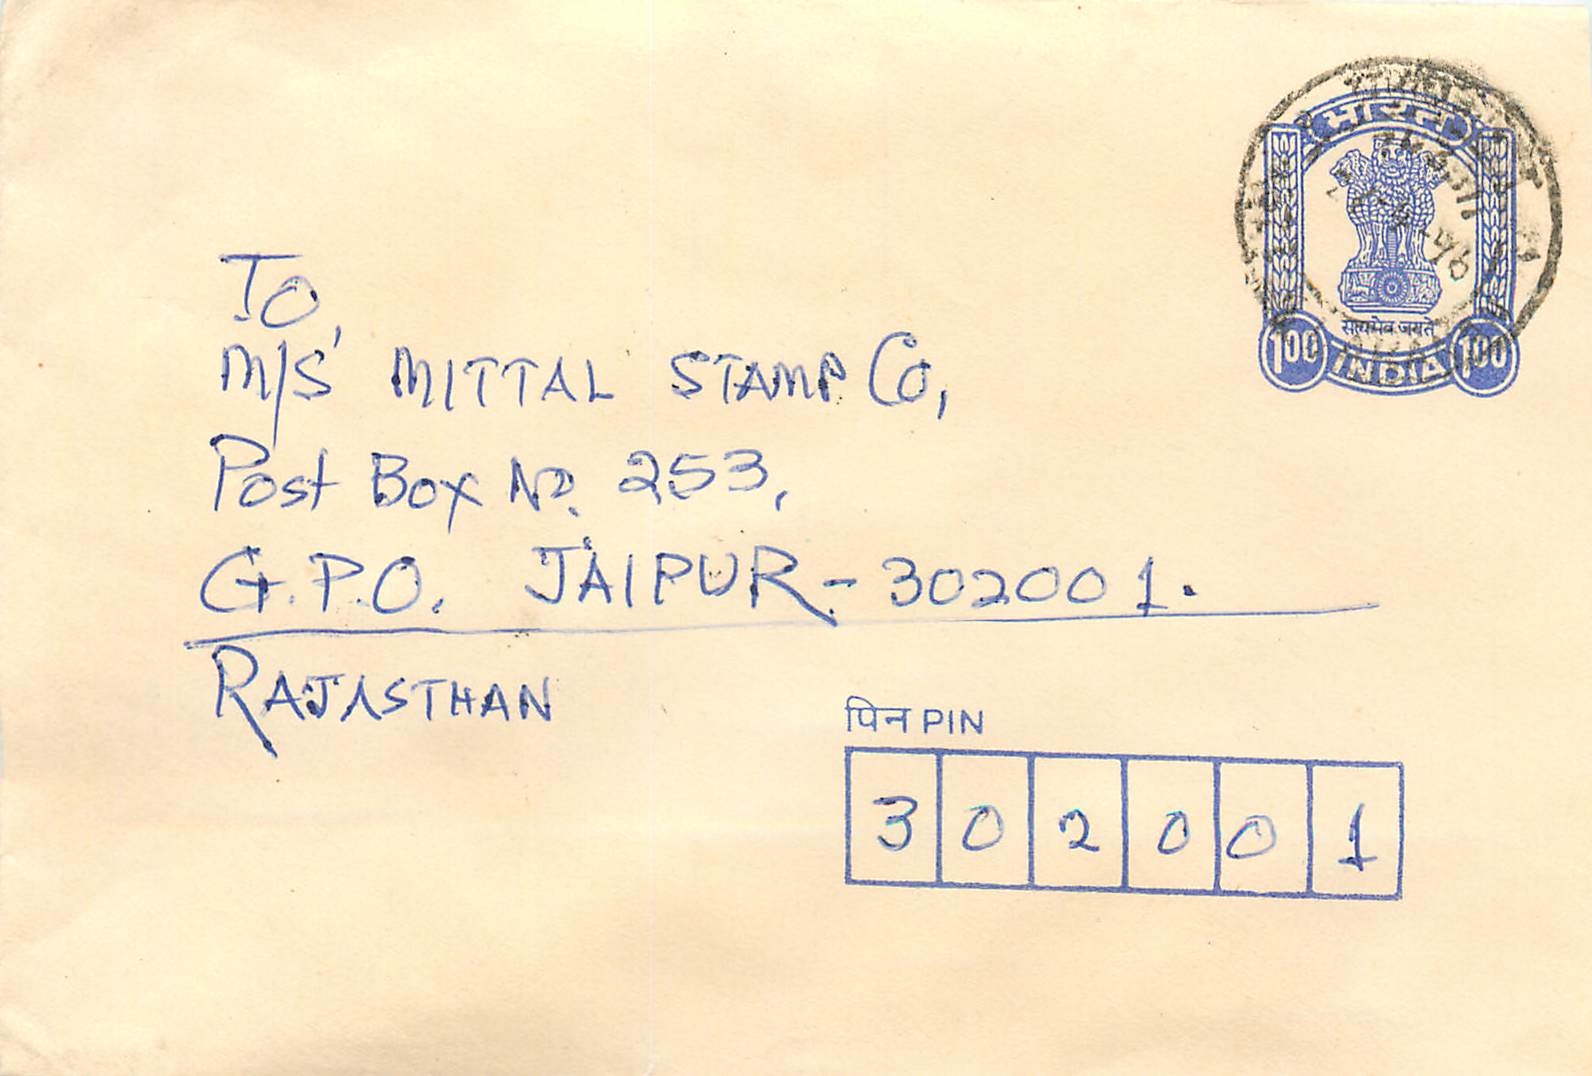 भारत
सत्यमेव जयते
1.00 INDIA 1.00
To,
M/S' MITTAL STAMP Co,
Post Box No. 253,
G.P.O. JAIPUR - 302001.
RAJASTHAN
पिन PIN
3 0 2 0 0 1